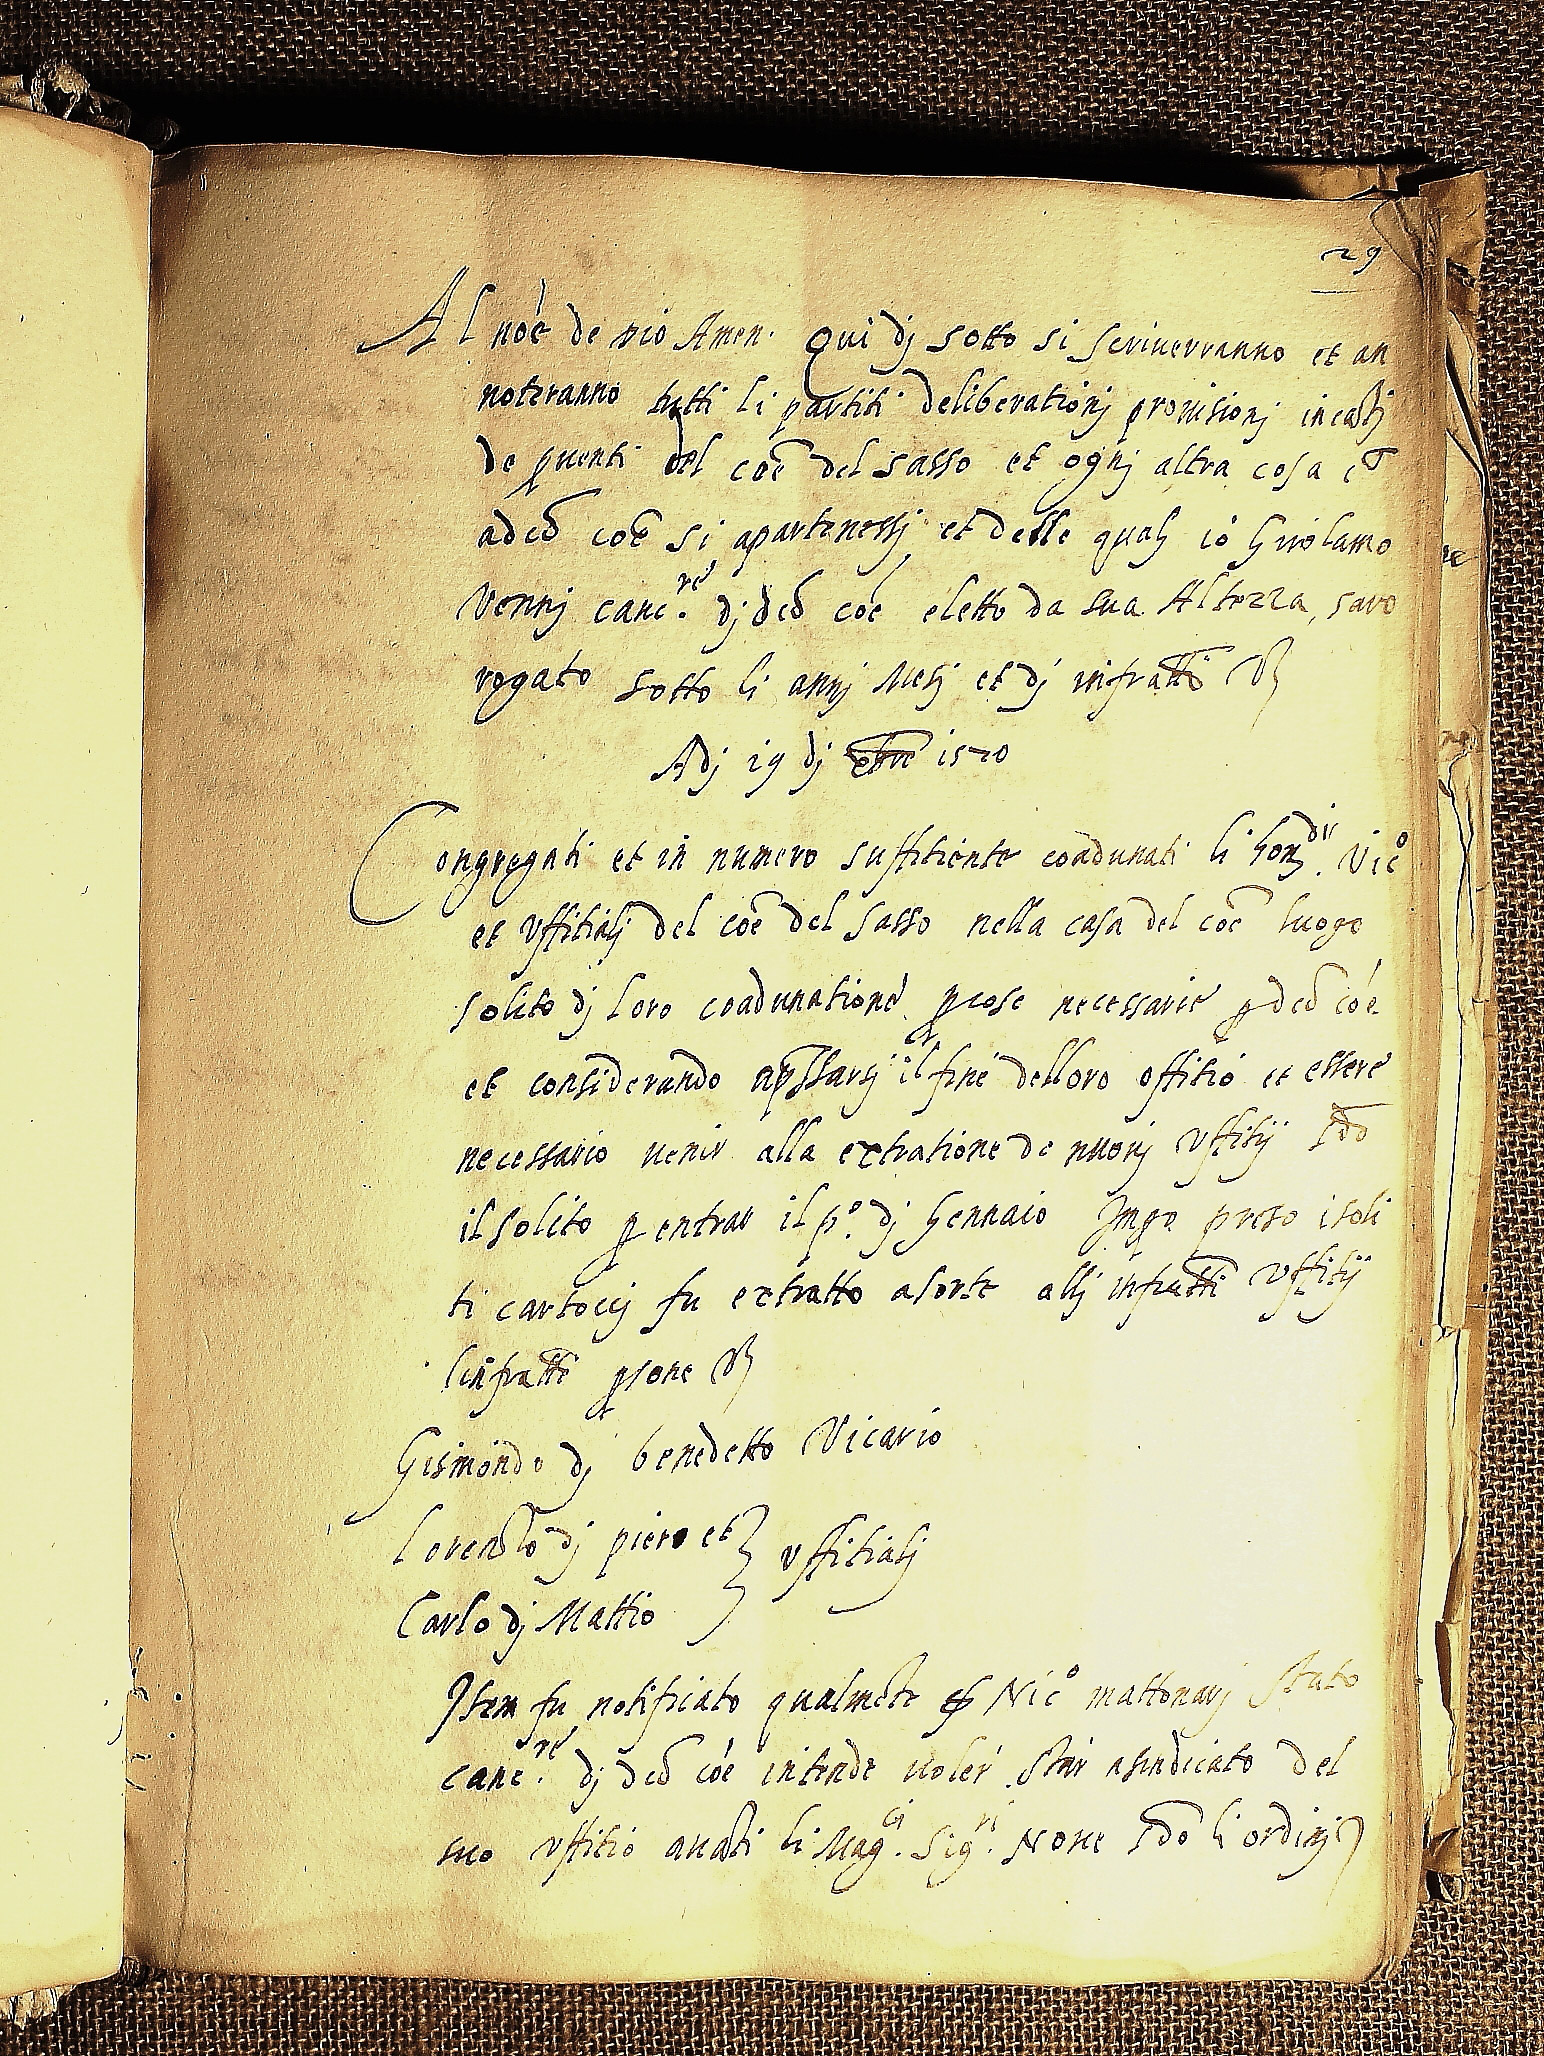 29
Al noe de Dio Amen. Qui dj sotto si scriverranno et an
noteranno tutti li partiti deliberationj provisionj incantj
de proventi del coe del sasso et ognj altra cosa ch
a dco coe si apartenessj et delle qualj io Girolamo
Vennj canc.re dj dco coe eletto da sua Altezza, saro
rogato sotto li annj Mesj et dj infratti
Adj 29 dj 1570
Congregati et in numero suffitiente coadunati li hon.di Vico
et uffitialj del coe del sasso nella casa del coe luogo
solito dj loro coadunatione p cose necessarie p dco coe
et considerando apssarsj il fine delloro offitio et essere
necessario venir alla extratione de nuovj uffitij sdo
il solito p entrar il po. dj Gennaio Impo preso i soli
ti cartoccj fu extratto a sorte allj infratti uffitij
linfratte psone
Gismondo dj benedetto Vicario
Lorenzo dj piero et
uffitialj
Carlo dj Mattio
Item fu notificato qualmete Nico mattonarj stato
canc.re dj dco coe intende voler star a sindicato del
suo uffitio avati li Mag.ci Sig.ri Nove sdo li ordinj